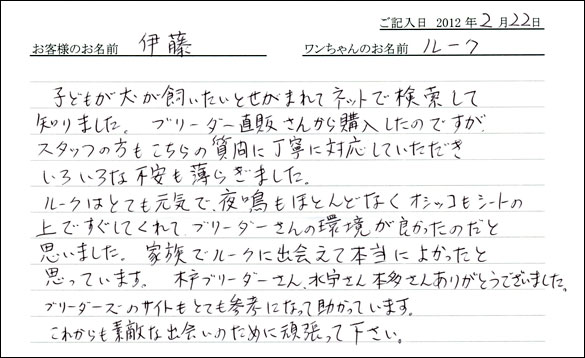 ご記入日 2012年2月22日
お客様のお名前 伊藤 ワンちゃんのお名前 ルーク
子どもが犬が飼いたいとせがまれてネットで検索して
知りました。ブリーダー直販さんから購入したのですが
スタッフの方もこちらの質問に丁寧に対応していただき
いろいろな不安も薄らぎました。
ルークはとても元気で、夜鳴もほとんどなくオシッコもシートの
上ですぐしてくれて、ブリーダーさんの環境が良かったのだと
思いました。家族でルークに出会えて本当によかったと
思っています。木戸ブリーダーさん、水宇さん本多さんありがとうございました。
ブリーダーズのサイトもとても参考になって助かっています。
これからも素敵な出会いのために頑張って下さい。